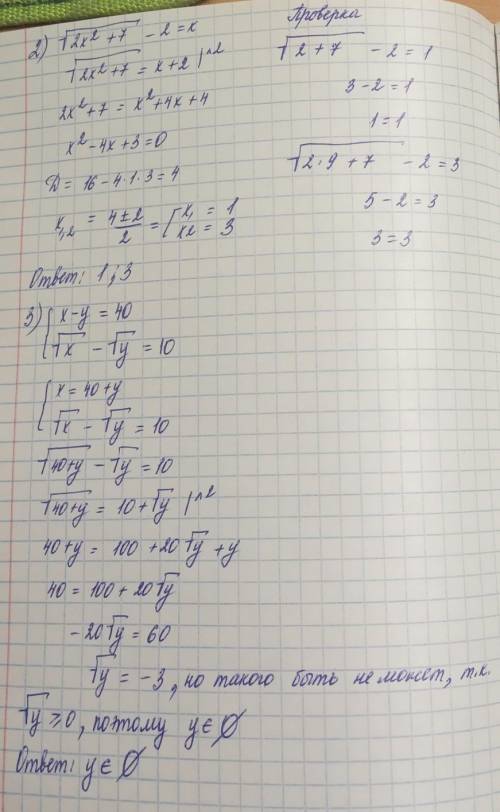 2) √(2x² + 7) - 2 = x
√(2x² + 7) = x + 2 |^2
2x² + 7 = x² + 4x + 4
x² - 4x + 3 = 0
D = 16 - 4·1·3 = 4
x₁,₂ = (4 ± 2)/2 = [x₁ = 1
x2 = 3
Ответ: 1; 3
Проверка
√(2 + 7) - 2 = 1
3 - 2 = 1
1 = 1
√(2·9 + 7) - 2 = 3
5 - 2 = 3
3 = 3
3) { x - y = 40
√x - √y = 10
{ x = 40 + y
√x - √y = 10
√(40+y) - √y = 10
√(40+y) = 10 + √y |^2
40 + y = 100 + 20√y + y
40 = 100 + 20√y
-20√y = 60
√y = -3, но такого быть не может, т.к.
√y ≥ 0, поэтому y ∈ ∅
Ответ: y ∈ ∅